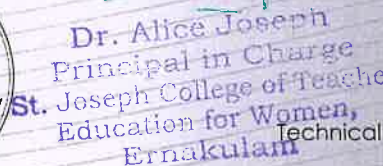 Dr. Alice Joseph
Principal in Charge
St. Joseph College of Teache
Education for Women,
Ernakulam
Technical